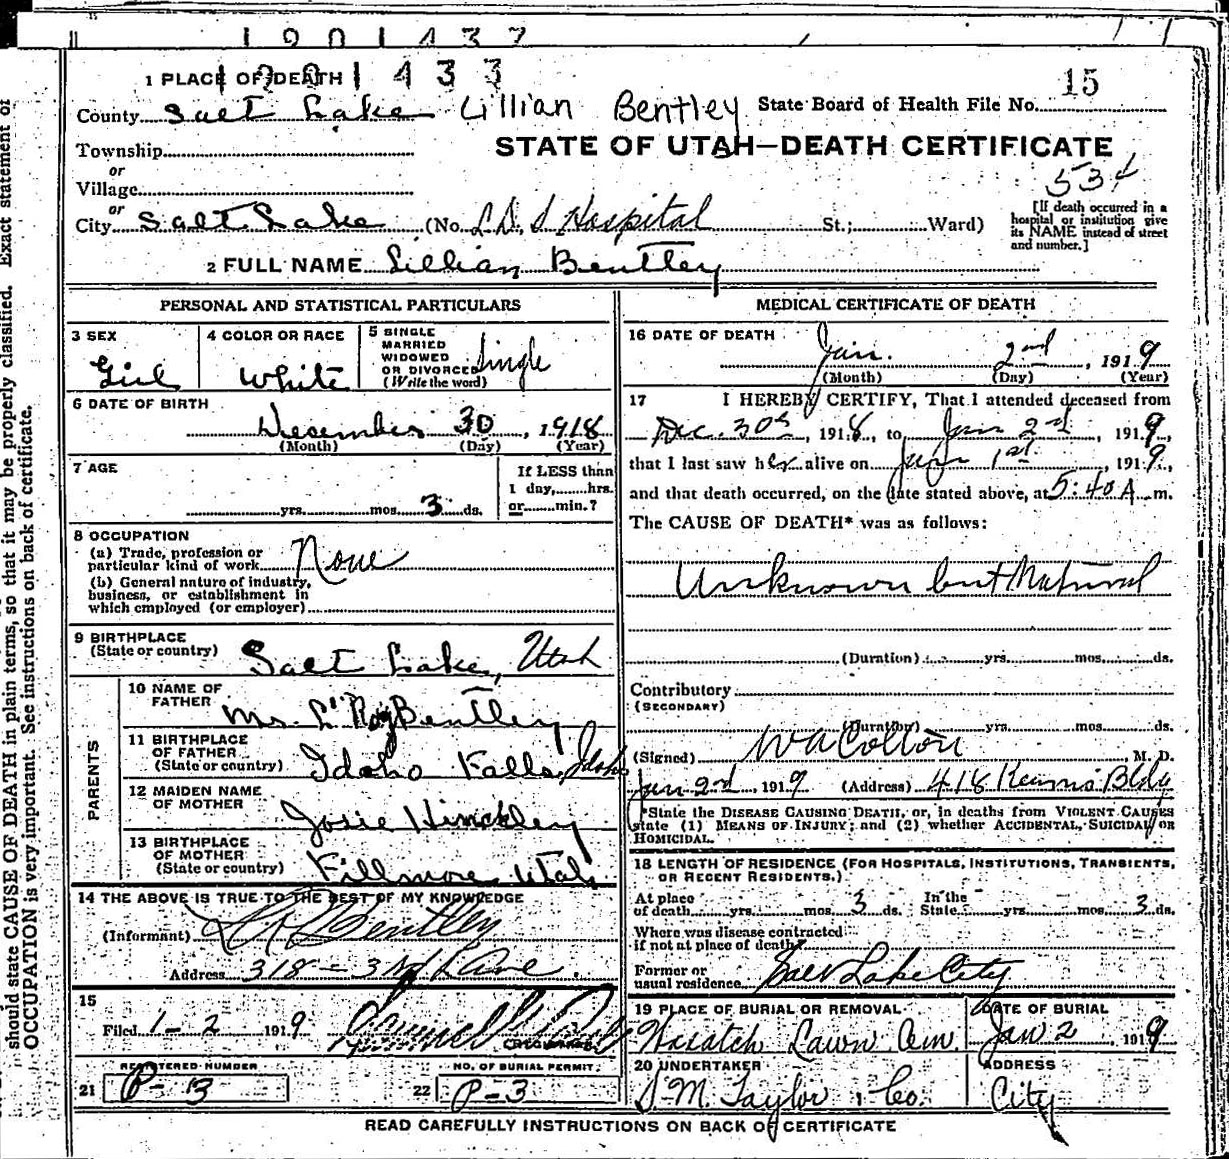 1901437
1901433
1 PLACE OF DEATH
15
County Salt Lake Lillian Bentley State Board of Health File No.
Township
STATE OF UTAH—DEATH CERTIFICATE
or
Village
534
or
City Salt Lake (No. L.D.S Hospital St.; Ward)
[If death occurred in a hospital or institution give its NAME instead of street and number.]
2 FULL NAME Lillian Bentley
PERSONAL AND STATISTICAL PARTICULARS
3 SEX
Girl
4 COLOR OR RACE
White
5 SINGLE
MARRIED
WIDOWED
OR DIVORCED
(Write the word)
Single
6 DATE OF BIRTH
December 30, 1918
(Month) (Day) (Year)
7 AGE
If LESS than
1 day, hrs.
yrs. mos. 3 ds. or min.?
8 OCCUPATION
(a) Trade, profession or
particular kind of work None
(b) General nature of industry,
business, or establishment in
which employed (or employer)
9 BIRTHPLACE
(State or country) Salt Lake, Utah
PARENTS
10 NAME OF
FATHER Mr. L' Roy Bentley
11 BIRTHPLACE
OF FATHER
(State or country) Idaho Falls, Idaho
12 MAIDEN NAME
OF MOTHER Josie Hinckley
13 BIRTHPLACE
OF MOTHER
(State or country) Fillmore Utah
14 THE ABOVE IS TRUE TO THE BEST OF MY KNOWLEDGE
(Informant) Bentley
Address 318 - 3rd Lane
15
Filed 1-2 1919
REGISTERED NUMBER
21 P-13
NO. OF BURIAL PERMIT
22 P-3
MEDICAL CERTIFICATE OF DEATH
16 DATE OF DEATH
Jan. 2nd, 1919
(Month) (Day) (Year)
17 I HEREBY CERTIFY, That I attended deceased from
Dec. 30th, 1918, to Jan 2nd, 1919
that I last saw her alive on Jan 1st, 1919,
and that death occurred, on the date stated above, at 5:40 A. m.
The CAUSE OF DEATH* was as follows:
Unknown but Natural
(Duration) yrs. mos. ds.
Contributory
(SECONDARY)
(Duration) yrs. mos. ds.
(Signed) W A Colton M. D.
Jan 2nd, 1919 (Address) 418 Kearns Bldg
*State the DISEASE CAUSING DEATH, or, in deaths from VIOLENT CAUSES
state (1) MEANS OF INJURY; and (2) whether ACCIDENTAL, SUICIDAL OR
HOMICIDAL.
18 LENGTH OF RESIDENCE (FOR HOSPITALS, INSTITUTIONS, TRANSIENTS,
OR RECENT RESIDENTS.)
At place
of death yrs. mos. 3 ds. In the State yrs. mos. 3 ds.
Where was disease contracted
if not at place of death?
Former or
usual residence Salt Lake City
19 PLACE OF BURIAL OR REMOVAL
Wasatch Lawn Cem.
DATE OF BURIAL
Jan 2 1919
20 UNDERTAKER
S. M. Taylor & Co.
ADDRESS
City
READ CAREFULLY INSTRUCTIONS ON BACK OF CERTIFICATE
should state CAUSE OF DEATH in plain terms, so that it may be properly classified. Exact statement of
OCCUPATION is very important. See instructions on back of certificate.